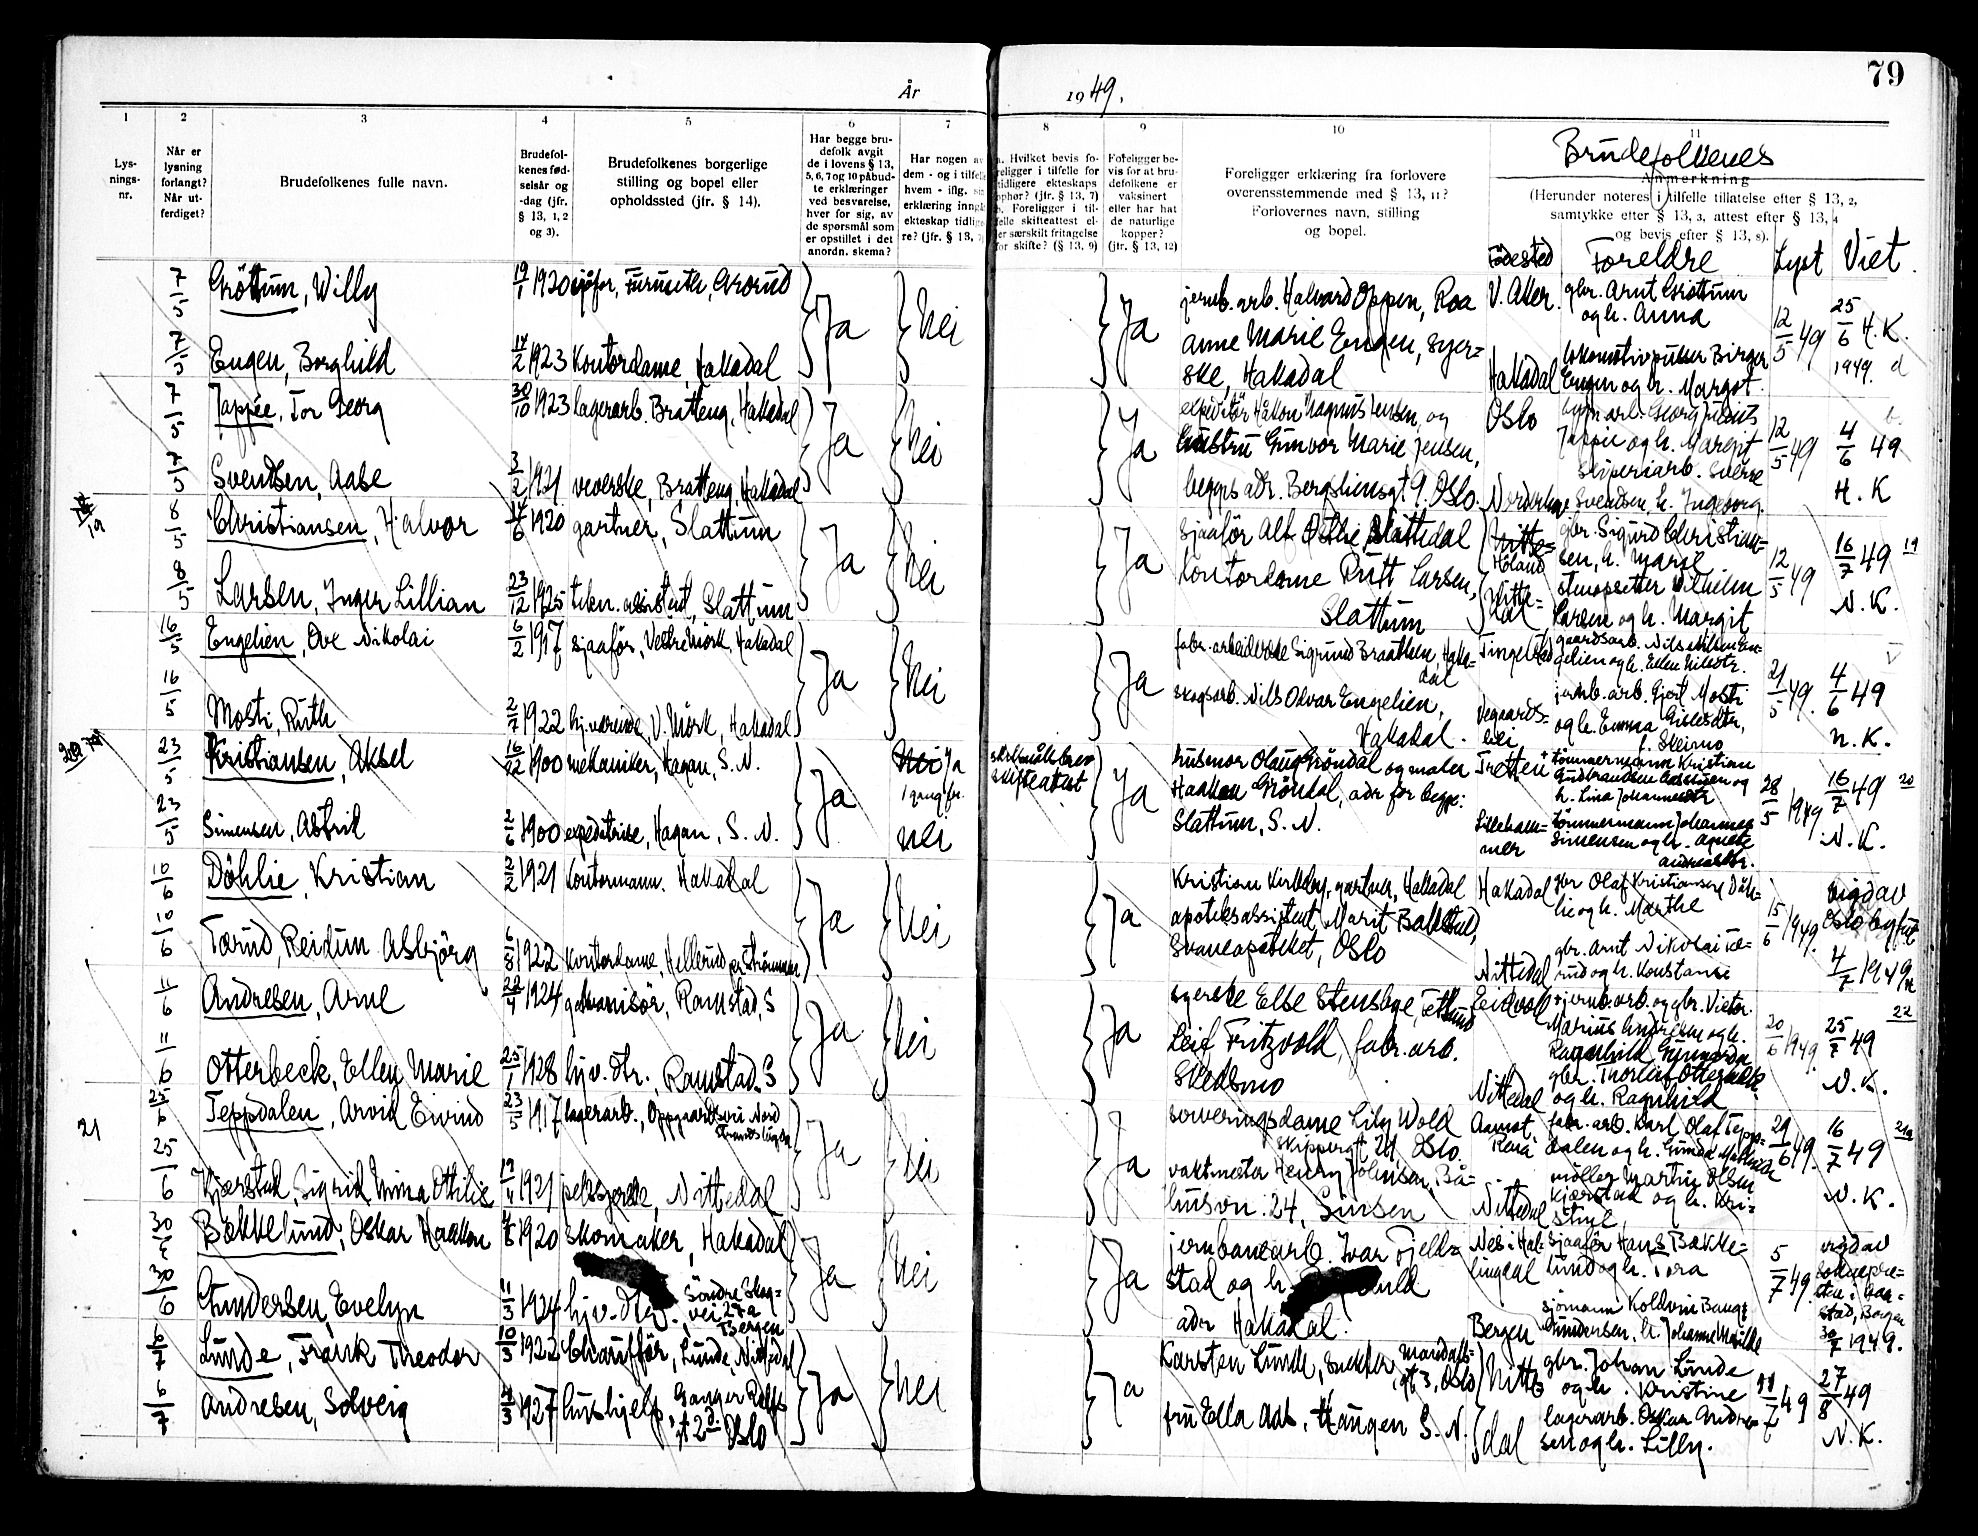 79
År 1949.
1 2 3 4 5 6 7 8 9 10 11
Lys-
nings-
nr.
Når er
lysning
forlangt?
Når ut-
ferdiget?
Brudefolkenes fulle navn.
Brudefol-
kenes fød-
selsår og
-dag (jfr.
§ 13, 1, 2
og 3).
Brudefolkenes borgerlige
stilling og bopel eller
opholdssted (jfr. § 14).
Har begge bru-
defolk avgit
de i lovens § 13,
5, 6, 7 og 10 påbud-
te erklæringer
ved besvarelse,
hver for sig, av
de spørsmål som
er opstillet i det
anordn. skema?
Har nogen av
dem - og i tilfelle
hvem - iflg. sin
erklæring inngå
ekteskap tidlige
re? (jfr. § 13,
a. Hvilket bevis fo-
religger i tilfelle for
tidligere ekteskaps
ophør? (jfr. § 13, 7)
b. Foreligger i til-
felle skifteattest el-
ler særskilt fritagelse
for skifte? (§ 13, 9)
Foreligger be-
vis for at bru-
defolkene er
vaksinert
eller har hat
de naturlige
kopper?
(jfr. § 13, 12)
Foreligger erklæring fra forlovere
overensstemmende med § 13, 11?
Forlovernes navn, stilling
og bopel.
Brudefolkenes
Anmerkning
(Herunder noteres i tilfelle tillatelse efter § 13, 2,
samtykke efter § 13, 3, attest efter § 13, 4
og bevis efter § 13, 8).
Fødested Foreldre Lyst Viet.
7/5 Gröttum, Willy 19/1 1920 sjåfør, Furuseth, Grorud Ja Nei Ja jernb.arb. Halvard Oppen, Roa V. Aker. gbr. Arnt Gröttum
og h. Anna
12/5 49 25/6 H.K.
1949.
7/5 Engen, Borghild 14/2 1923 Kontordame, Hakadal
Anne Marie Engen, syer-
ske, Hakadal
Hakadal lokomotivpusser Birger
Engen og h. Margot.
7/5 Jappée, Tor Georg 30/10 1923 lagerarb. Bratteng, Hakadal Ja Nei Ja ekspeditör Håkon Magnus Jensen, og
hustru Gunvor Marie Jensen,
begges adr. Bergsliensgt 9. Oslo.
Oslo Georg Julius
Jappée og h. Margit
12/5 49 4/6 49
H. K
7/5 Svendsen, Aase 3/2 1921 veverske, Bratteng, Hakadal
sliperiarb. Sverre
Svendsen, h. Ingeborg.
19
8/5 Christiansen, Halvor 14/6 1920 gartner, Slattum Ja Nei Ja sjaafør Alf Nittedal
Kontordame Rutt Larsen,
Slattum
Höland gbr. Sigurd Christian-
sen, h. Marie
12/5 49 16/7 49 19
N.K.
8/5 Larsen, Inger Lillian 23/12 1925 tekn. assistent, Slattum
Nitte-
dal Vilhelm
Larsen og h. Margit
16/5 Engelien, Ove Nikolai 6/2 1917 sjaafør, Vestre Mörk, Hakadal Ja Nei Ja fabr.arbeiderske Sigrund Braathen, Haka-
dal
skogsarb. Nils Olvar Engelien,
Hakadal.
Tingelstad gaardsarb. Nils Nilsen En-
gelien og h. Ellen
21/5 49. 4/6 49
N. K.
16/5 Mosti, Ruth 2/7 1922 hj.værende V. Mörk, Hakadal
Vegaards-
hei jernb.arb. Gjert Mosti
og h. Emma
20
23/5 Kristiansen, Aksel 16/12 1900 mekaniker, Hagan, S. N. Ja Nei Ja
1 gang før
skilsmissebrev
skifteattest
Ja husmor Olaug Gröndal og maler
Haakon Gröndal, adr for begge:
Slattum, S. N.
Tretten tömmermann Kristian
Gudbrandsen og
h. Lina Johannesdtr
28/5 1949 16/7 49 20
N. K.
23/5 Simensen, Astrid 2/6 1900 expeditrise, Hagan, S. N. nei
Lilleham-
mer tömmermann Johannes
Simensen og h. Agnete
Andreasdtr.
10/6 Döhlie, Kristian 2/2 1921 Kontormann. Hakadal Ja Nei Ja Kristian Kirkeby, gartner, Hakadal
apoteksassistent Marit Bakstad,
Svaneapoteket, Oslo
Hakadal gbr Olaf Kristiansen Döh-
lie og h. Marthe
15/6 1949. vigd av
Oslo byfut
4/7 1949
10/6 Tærud, Reidun Asbjörg 6/8 1922 kontordame, Hellerud pr Strömmen
Nittedal gbr. Arnt Nikolai Tæ-
rud og h. Konstanse
11/6 Andresen, Arne 22/4 1924 galvanisör, Ramstad, S Ja Nei Ja syerske Else Stensbye, Fetsund
Leif Fritzvold, fabr.arb.
Skedsmo
Eidsvoll jernb.arb. og gbr. Victor
Marius Andresen og h.
Ragnhild
20/6 1949. 25/7 49 22
N. K.
11/6 Otterbeck, Ellen Marie 25/1 1928 hjv. dtr., Ramstad, S
Nittedal gbr. Thorleif Otterbeck
og h. Ragnhild
21
25/6 Teppdalen, Arvid Eivind 23/5 1917 lagerarb., Oppgaardsvn Nord
Strandslinjen
Ja Nei Ja serveringsdame Lily Wold
Skippergt 21 Oslo.
vaktmester Henry Johansen, Bå-
husvn. 24, Sinsen
Aamot,
Rena fabr.arb. Karl Olaf Tepp-
dalen og h. Gunda Mathilda
29/6 49. 16/7 49 21a
N. K.
25/6 Kjærstad, Sigrid Minna Otilie 19/4 1921 pelssyerske, Nittedal
Nittedal möller Martin Olsen
Kjærstad og h. Kri-
stine,
30/6 Bækkelund, Oskar Haakon 1920 skomaker, Hakadal Ja Nei Ja jernbanearb. Ivar Fjell-
stad og h.
adr Hakadal.
Nes i Hal-
lingdal sjaafør Hans Bække-
lund og h. Tora
5/7 49. vigd av
sokneprest-
en i Haa-
stad, Bergen
30/7 1949.
30/6 Gundersen, Evelyn 11/3 1924 hjv. dtr. Söndre Skog-
vei 29a
Bergen
Bergen sjömann Koldvin Bauge
Gundersen, h. Johanne Matilde
6/7 Lunde, Frank Theodor 10/3 1922 Chaufför, Lunde, Nittedal Ja Nei Ja Karsten Lunde, snekker, Mandals-
gt 3, Oslo
fru Ella Aas, Haugen S. N.
Nitte
dal gbr. Johan Lunde
og h. Kristine
11/7 49 27/8 49
N. K.
6/7 Andresen, Solveig 4/3 1927 hushjelp, Ganger Rolfs
gt 2d. Oslo
lagerarb. Oskar Andre-
sen og h. Lilly.